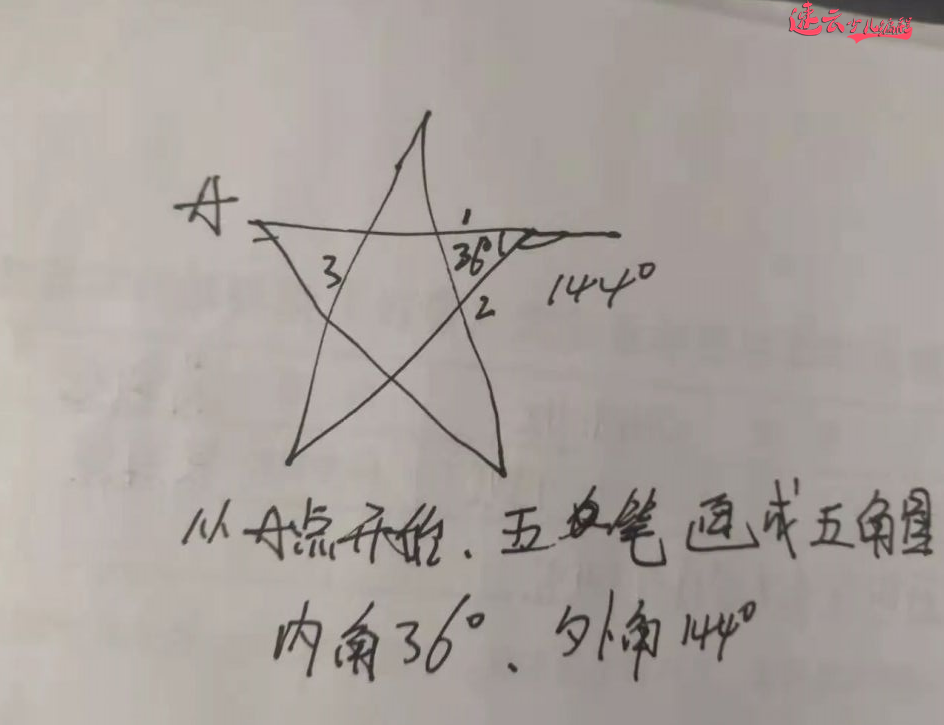 速云少儿编程
A
1
36°
3
144°
2
从A点开始、五笔画成五角星
内角36°、外角144°